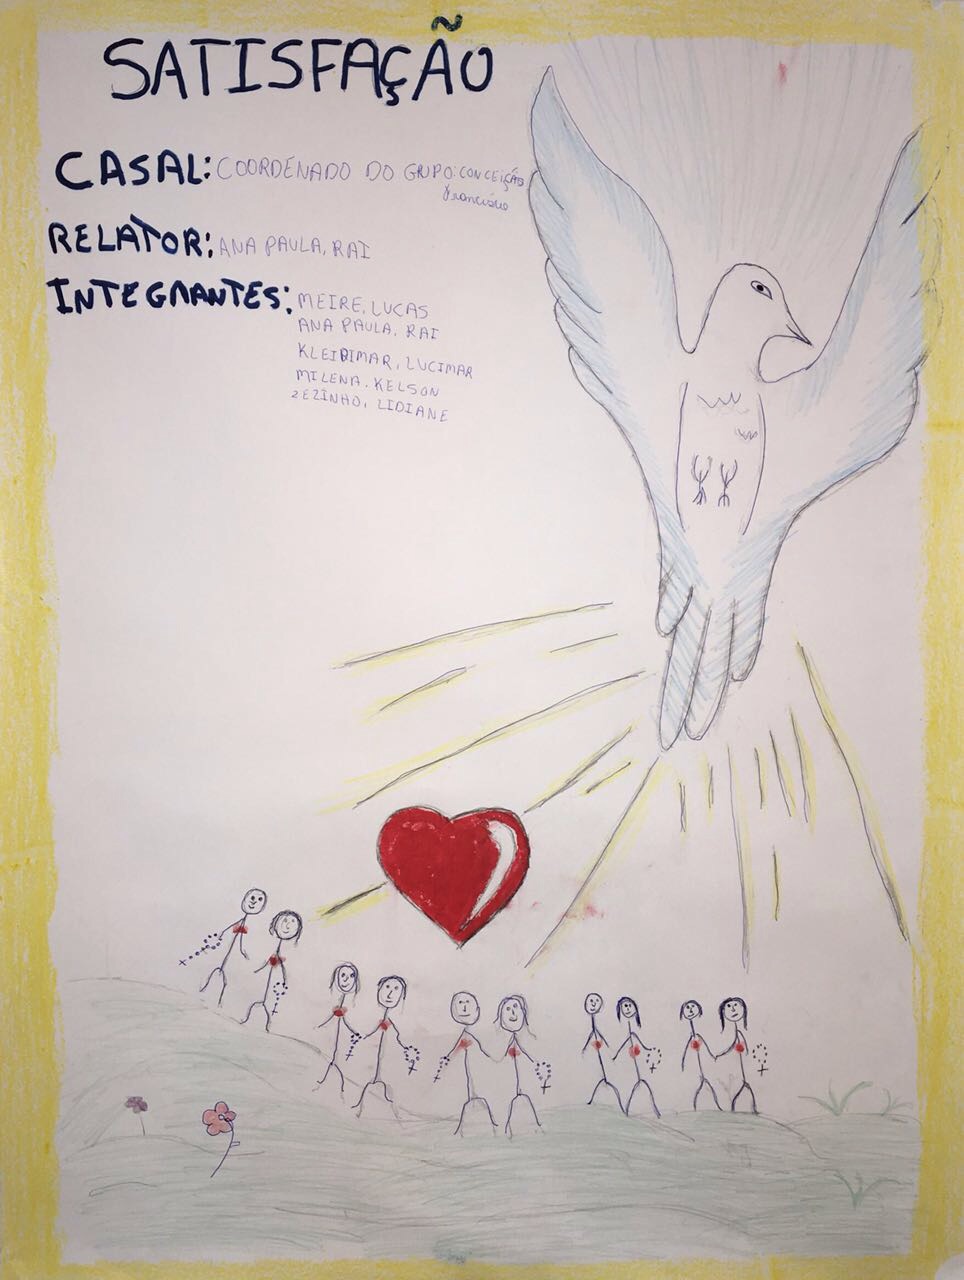 SATISFAÇÃO
CASAL: COORDENADO DO GRUPO: CONCEIÇÃO
Francisco
RELATOR: ANA PAULA, RAI
INTEGRANTES: MEIRE, LUCAS
ANA PAULA, RAI
KLEIBIMAR, LUCIMAR
MILENA, KELSON
ZEZINHO, LIDIANE